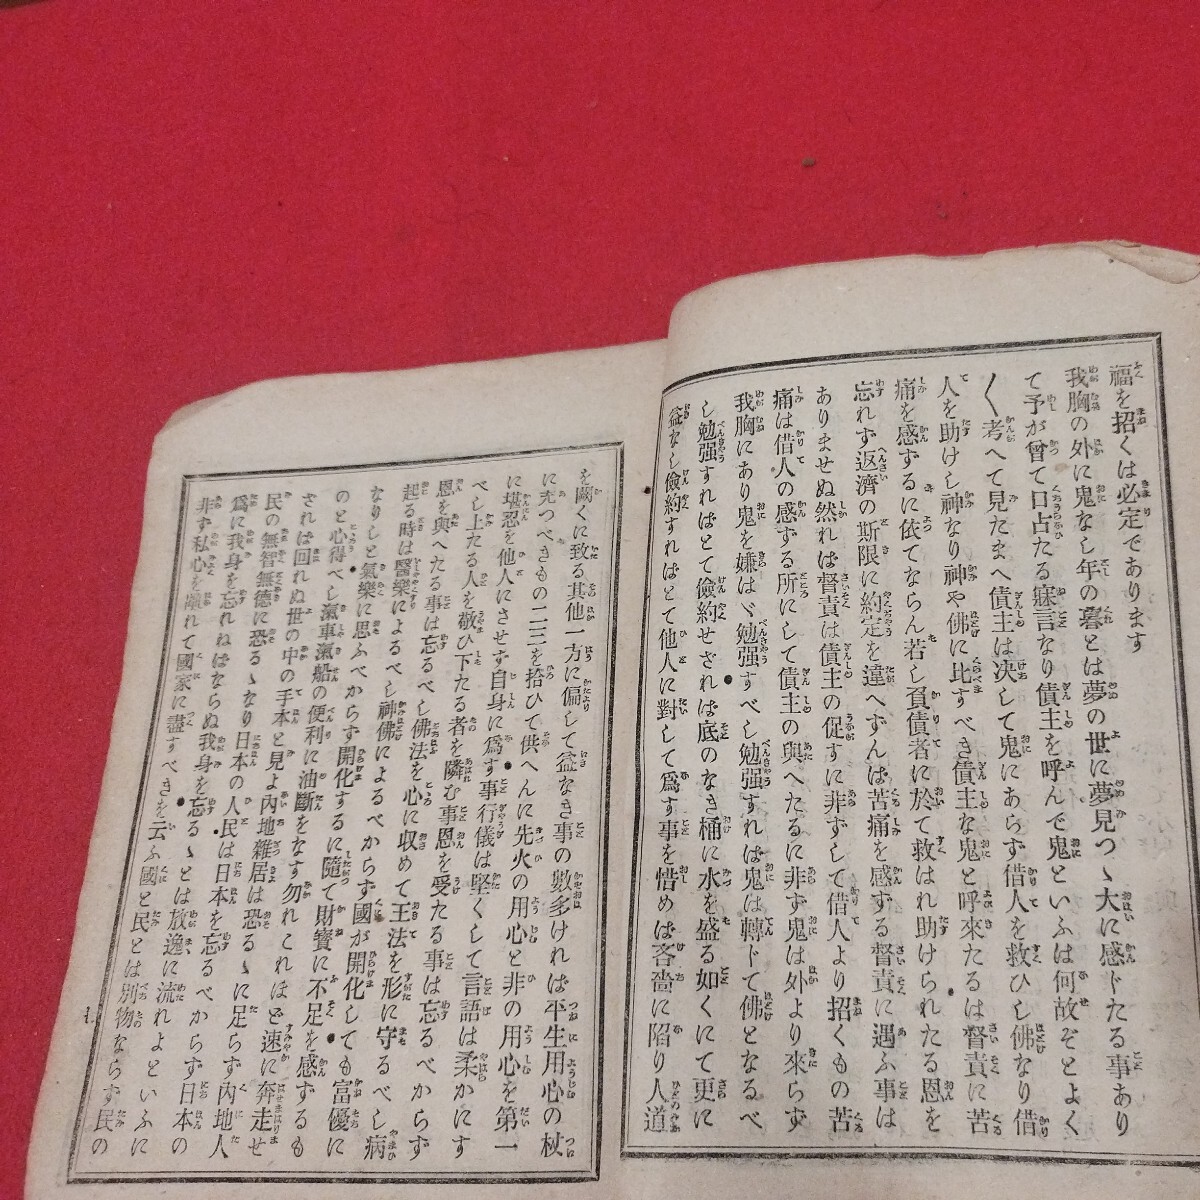 福を招くは必定であります
我胸の外に鬼なし年の暮とは夢の世に夢見つゝ大に感ドたる事あり
て予が曾て口占たる寐言なり債主を呼んで鬼といふは何故ぞとよく
く考へて見たまへ債主は决して鬼にあらず借人を救ひし佛なり借
人を助けし神なり神や佛に比すべき債主な鬼と呼來たるは督責に苦
痛を感ずるに依てならん若し負債者に於て救はれ助けられたる恩を
忘れず返濟の斯限に約定を違へずんば苦痛を感ずる督責に遇ふ事は
ありませぬ然れば督責は債主の促すに非ずして借人より招くもの苦
痛は借人の感ずる所にして債主の與へたるに非ず鬼は外より來らず
我胸にあり鬼を嫌はゞ勉强すべし勉强すれば鬼は轉ドて佛となるべ
し勉强すればとて儉約せざれば底のなき桶に水を盛る如くにて更に
益なし儉約すればとて他人に對して爲す事を惜めば吝嗇に陷り人道
を闕くに致る其他一方に偏して益なき事の數多ければ平生用心の杖
に充つべきもの二三を拾ひて供へんに先火の用心と非の用心を第一
に堪忍を他人にさせず自身に爲す事行儀は堅くして言語は柔かにす
べし上たる人を敬ひ下たる者を隣む事恩を受たる事は忘るべからず
恩を與へたる事は忘るべし佛法を心に収めて王法を形に守るべし病
起る時は醫樂によるべし神佛によるべからず國が開化しても富優に
なりしと氣樂に思ふべからず開化するに隨て財寳に不足を感ずるも
のと心得べし滊車滊船の便利に油斷をなす勿れこれほど速に奔走せ
されば回れぬ世の中の手本と見よ內地雜居は恐るゝに足らず內地人
民の無智無德に恐るゝなり日本の人民は日本を忘るべからず日本の
爲に我身を忘れねばならぬ我身を忘るゝとは放逸に流れよといふに
非ず私心を離れて國家に盡すべきを云ふ國と民とは別物ならず民の